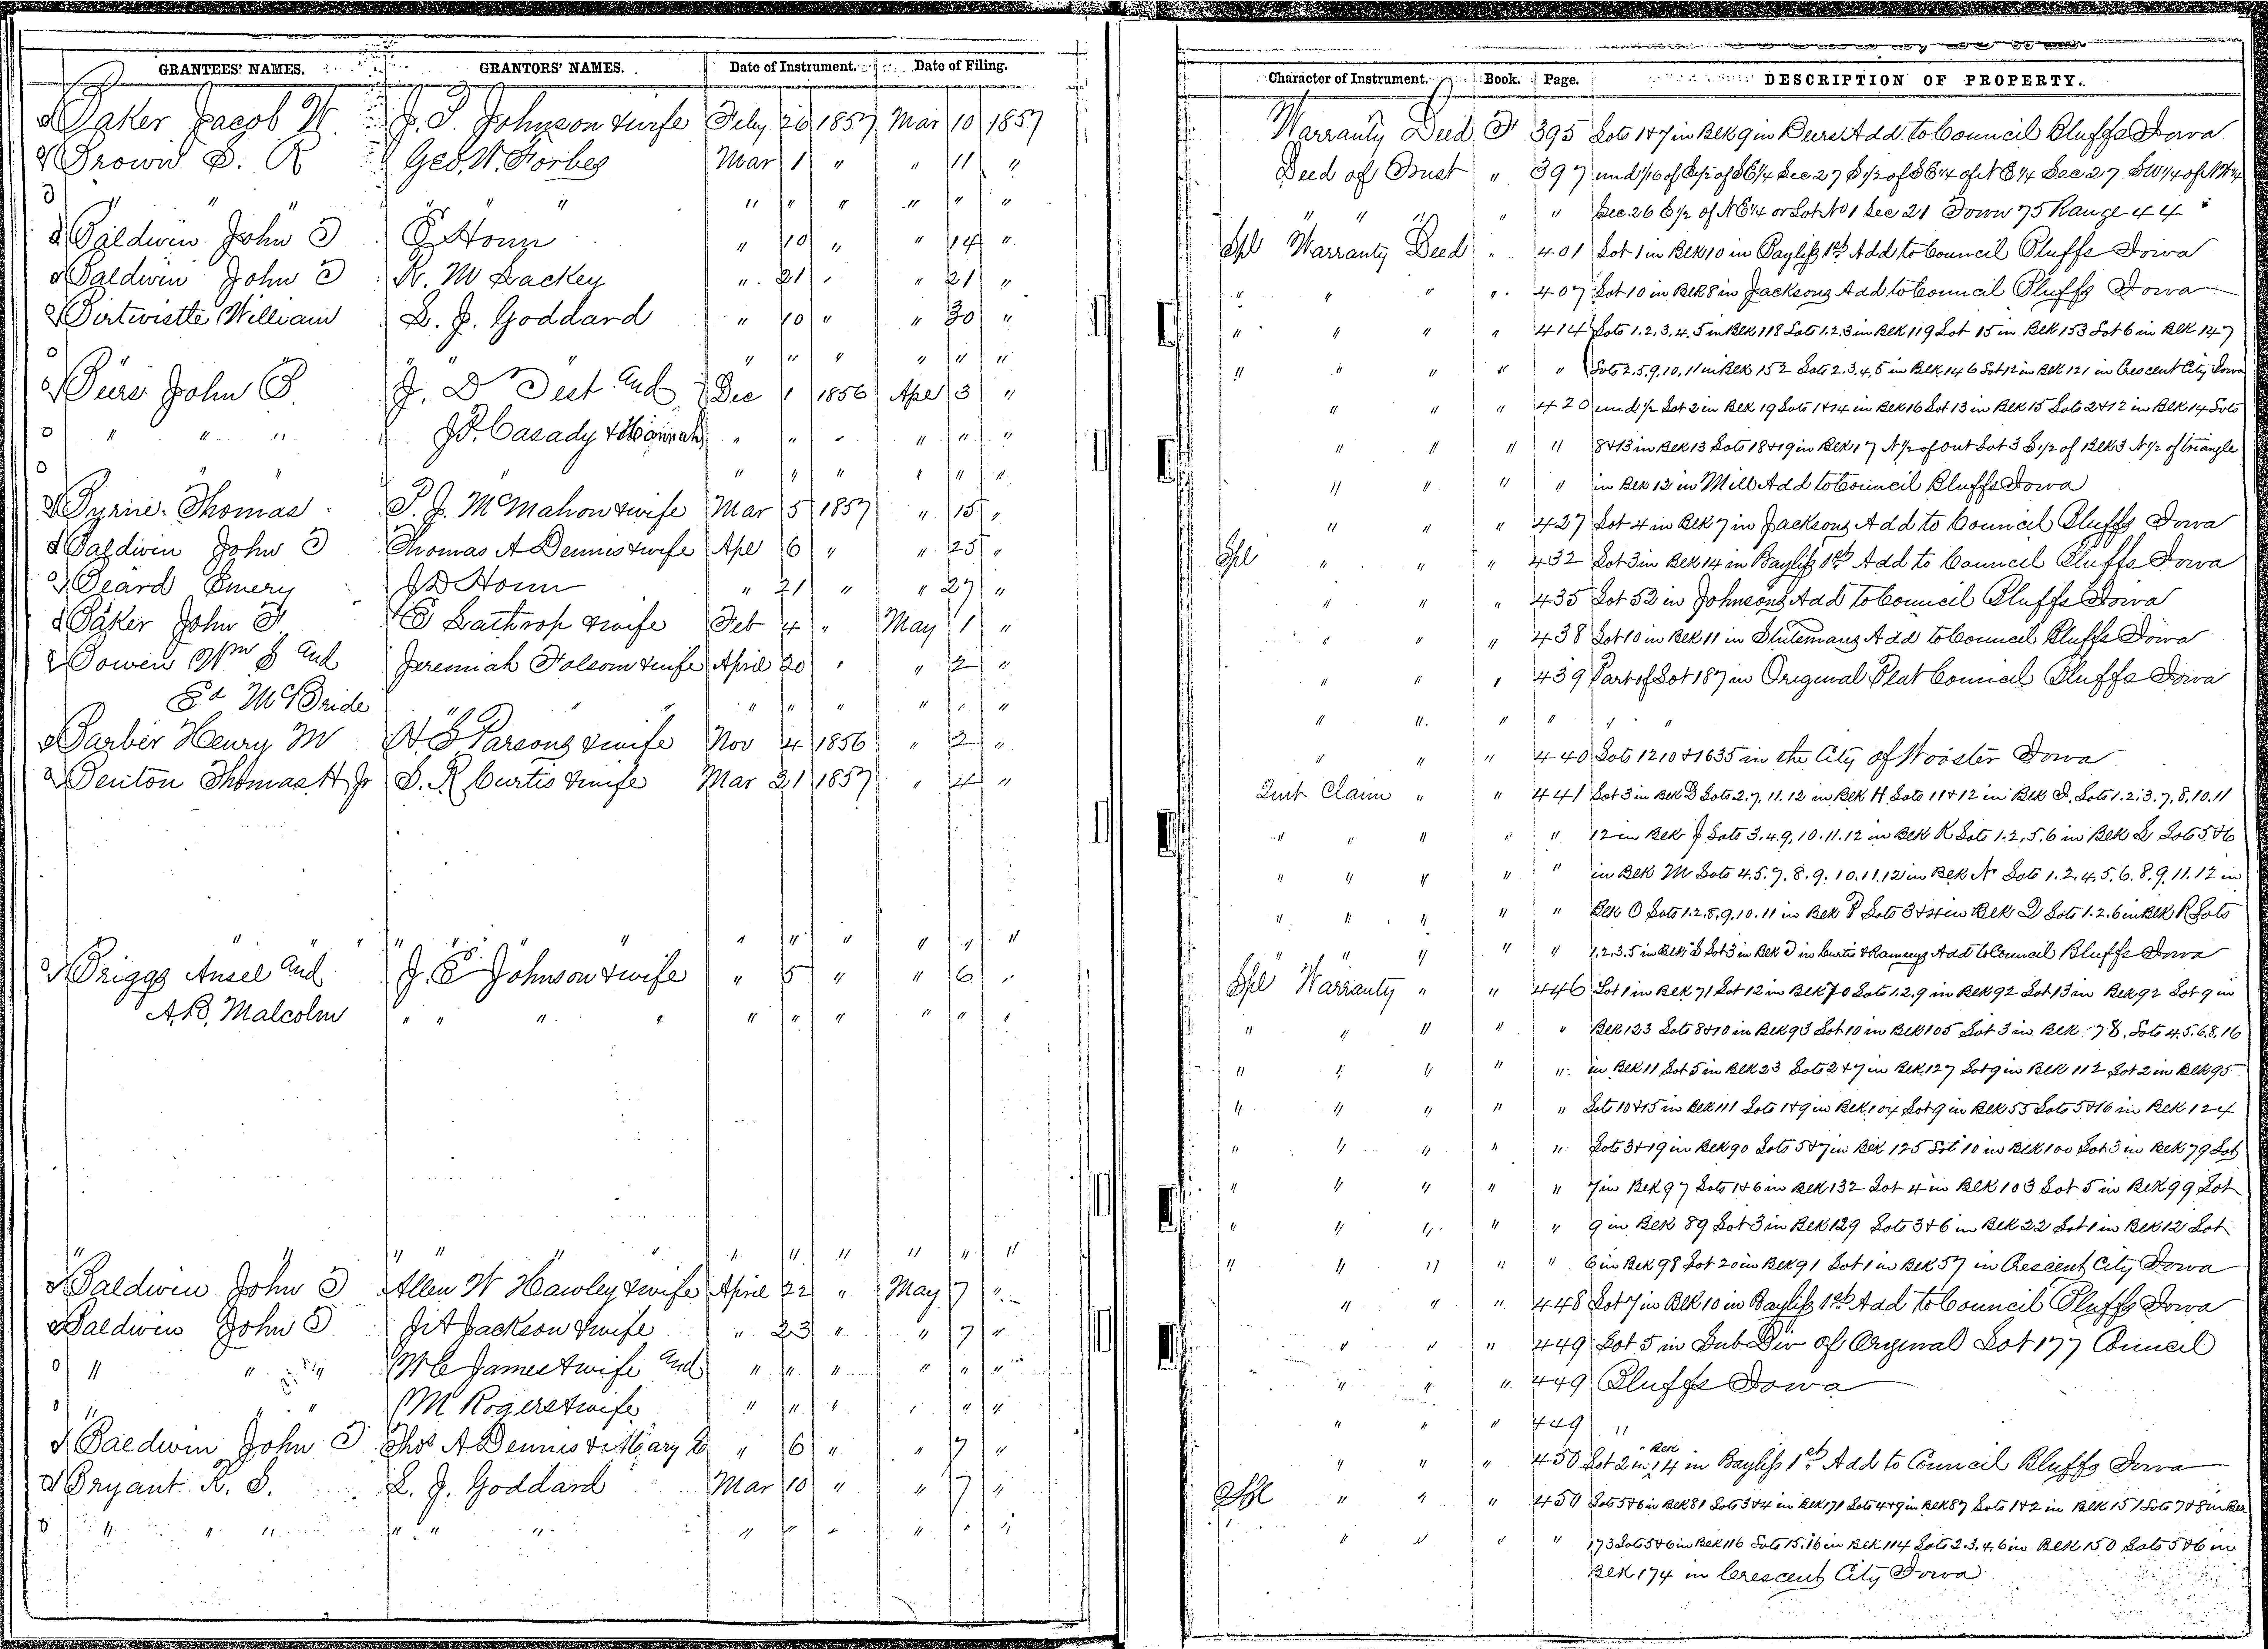 GRANTEES' NAMES. GRANTORS' NAMES. Date of Instrument. Date of Filing. Character of Instrument. Book. Page. DESCRIPTION OF PROPERTY.
Baker Jacob W J. S. Johnson & wife Feby 26 1857 Mar 10 1857 Warranty Deed F 395 Lots 1 & 7 in Blk 9 in Beers Add to Council Bluffs Iowa
Brown S. R Geo. W. Forbes Mar 1 " " 11 " Deed of Trust " 397 und 1/16 of E 1/2 of SE 1/4 Sec 27 S 1/2 of SE 1/4 of NE 1/4 Sec 27 SW 1/4 of NW 1/4
" " " " " " " " " " " " " " " " Sec 26 E 1/2 of NE 1/4 or Lot No 1 Sec 21 Town 75 Range 44
Baldwin John T E Honn " 10 " " 14 " Spl Warranty Deed " 401 Lot 1 in Blk 10 in Bayliss 1st Add to Council Bluffs Iowa
Baldwin John T R. M Lackey " 21 " " 21 " " " " " 407 Lot 10 in Blk 8 in Jacksons Add to Council Bluffs Iowa
Birtwistle William L. J. Goddard " 10 " " 30 " " " " " 414 Lots 1. 2. 3. 4. 5 in Blk 118 Lots 1. 2. 3 in Blk 119 Lot 15 in Blk 153 Lot 6 in Blk 147
" " " " " " " " " " " " " " Lots 2. 5. 9. 10. 11 in Blk 152 Lots 2. 3. 4. 5 in Blk 146 Lot 12 in Blk 121 in Crescent City Iowa
Beers John P. J. D Test and Dec 1 1856 Apl 3 " " " " 420 und 1/2 Lot 2 in Blk 19 Lots 1 & 14 in Blk 16 Lot 13 in Blk 15 Lots 2 & 12 in Blk 14 Lots
" " " J. P. Casady & Hannah " " " " " " " " " " 8 & 13 in Blk 13 Lots 18 & 19 in Blk 17 N 1/2 of Out Lot 3 S 1/2 of Blk 3 N 1/2 of triangle
" " " " " " " " " " " " " in Blk 12 in Mill Add to Council Bluffs Iowa
Byrne Thomas P. J. McMahon & wife Mar 5 1857 " 15 " " " " 427 Lot 4 in Blk 7 in Jacksons Add to Council Bluffs Iowa
Baldwin John T Thomas A Dennis & wife Apl 6 " " 25 " Spl " " " 432 Lot 3 in Blk 14 in Bayliss 1st Add to Council Bluffs Iowa
Beard Emery J D Honn " 21 " " 27 " " " " 435 Lot 52 in Johnsons Add to Council Bluffs Iowa
Baker John H E Lathrop & wife Feb 4 " May 1 " " " " 438 Lot 10 in Blk 11 in Stutsmans Add to Council Bluffs Iowa
Bowen Wm S and Jeremiah Folsom & wife April 20 " " 2 " " " " 439 Part of Lot 187 in Original Plat Council Bluffs Iowa
Ed McBride " " " " " " " " " " " " " "
Barber Henry M N. S. Parsons & wife Nov 4 1856 " 2 " " " " 440 Lots 1210 & 1635 in the City of Wooster Iowa
Benton Thomas H Jr S. R Curtis & wife Mar 21 1857 " 4 " Quit Claim " " 441 Lot 3 in Blk D Lots 2. 7. 11. 12 in Blk H. Lots 11 & 12 in Blk I. Lots 1. 2. 3. 7. 8. 10. 11
" " " " " 12 in Blk J Lots 3. 4. 9. 10. 11. 12 in Blk K Lots 1. 2. 5. 6 in Blk L Lots 5 & 6
" " " " " in Blk M Lots 4. 5. 7. 8. 9. 10. 11. 12 in Blk N Lots 1. 2. 4. 5. 6. 8. 9. 11. 12 in
" " " " " Blk O Lots 1. 2. 8. 9. 10. 11 in Blk P Lots 3 & 4 in Blk Q Lots 1. 2. 6 in Blk R Lots
" " " " " " " " " " " " " " " " " 1. 2. 3. 5 in Blk S Lot 3 in Blk T in Curtis & Ramseys Add to Council Bluffs Iowa
Briggs Ansel and J. E Johnson & wife " 5 " " 6 " Spl Warranty " " 446 Lot 1 in Blk 71 Lot 12 in Blk 70 Lots 1. 2. 9 in Blk 92 Lot 13 in Blk 92 Lot 9 in
A. B. Malcolm " " " " " " " " " " " " " " " Blk 123 Lots 8 & 10 in Blk 93 Lot 10 in Blk 105 Lot 3 in Blk 78. Lots 4. 5. 6. 8. 16
" " " " " in Blk 11 Lot 5 in Blk 23 Lots 2 & 7 in Blk 127 Lot 9 in Blk 112 Lot 2 in Blk 95
" " " " " Lots 10 & 15 in Blk 111 Lots 1 & 9 in Blk 104 Lot 9 in Blk 55 Lots 5 & 16 in Blk 124
" " " " " Lots 3 & 19 in Blk 90 Lots 5 & 7 in Blk 125 Lot 10 in Blk 100 Lot 3 in Blk 79 Lot
" " " " " 7 in Blk 97 Lots 1 & 6 in Blk 132 Lot 4 in Blk 103 Lot 5 in Blk 99 Lot
" " " " " 9 in Blk 89 Lot 3 in Blk 129 Lots 3 & 6 in Blk 22 Lot 1 in Blk 12 Lot
" " " " " " " " " " " " " " " " " 6 in Blk 98 Lot 20 in Blk 91 Lot 1 in Blk 57 in Crescent City Iowa
Baldwin John T Allen W Hawley & wife April 22 " May 7 " " " " 448 Lot 7 in Blk 10 in Bayliss 1st Add to Council Bluffs Iowa
Baldwin John T J A Jackson & wife " 23 " " 7 " " " " 449 Lot 5 in Sub Div of Original Lot 177 Council
" " " W C James & wife and " " " " " " " " " 449 Bluffs Iowa
" " " M Rogers & wife " " " " " " " " " 449 "
Baldwin John T Thos A Dennis & Mary E " 6 " " 7 " " " " 450 Lot 2 in Blk 14 in Bayliss 1st Add to Council Bluffs Iowa
Bryant R. S. L. J. Goddard Mar 10 " " 7 " Spl " " " 450 Lots 5 & 6 in Blk 81 Lots 3 & 4 in Blk 171 Lots 4 & 9 in Blk 87 Lots 1 & 2 in Blk 151 Lots 7 & 8 in Blk
" " " " " " " " " " " " " " " " 173 Lots 5 & 6 in Blk 116 Lots 15. 16 in Blk 114 Lots 2. 3. 4. 6 in Blk 150 Lots 5 & 6 in
Blk 174 in Crescent City Iowa